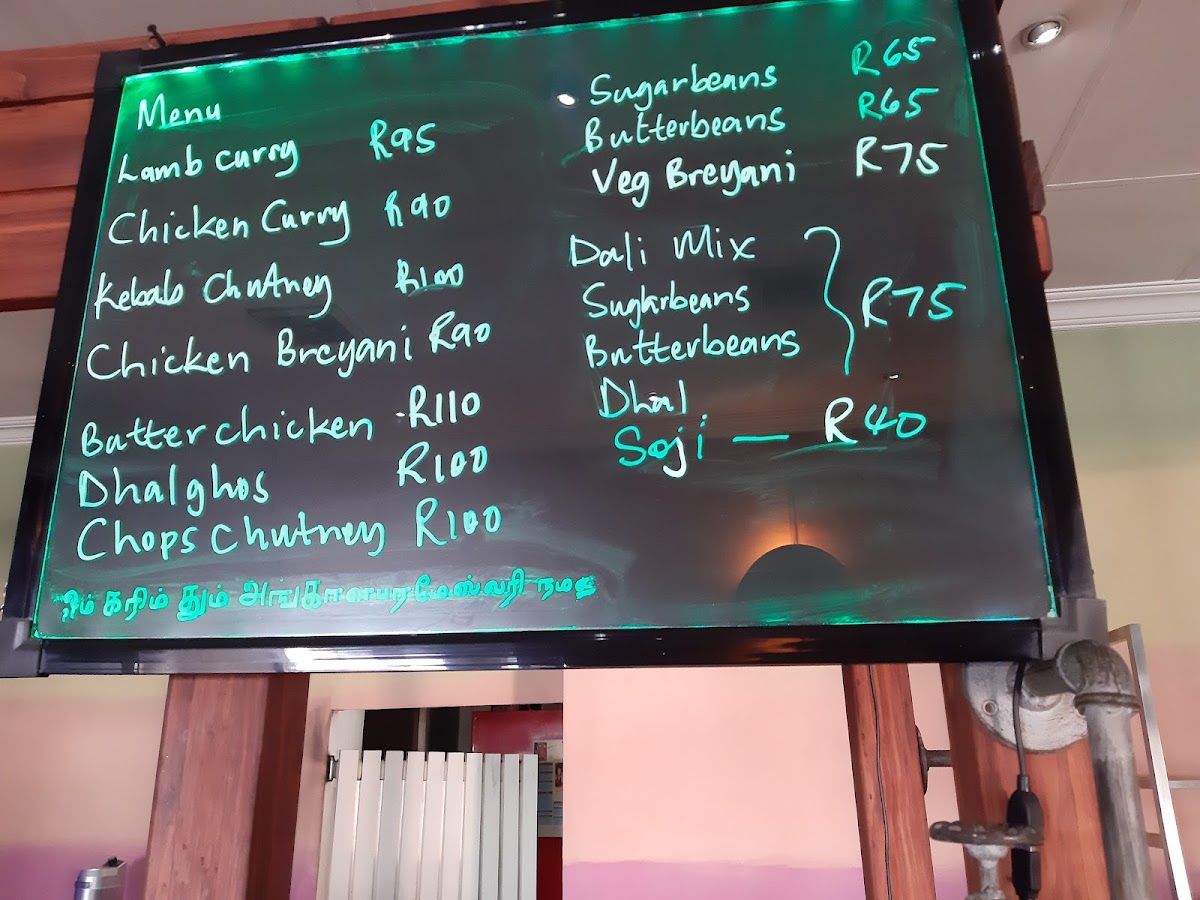 Menu
Lamb curry R95
Chicken Curry R90
Kebab Chutney R100
Chicken Breyani R90
Butter chicken R110
Dhalghos R100
Chops Chutney R100
ஓம் கரிம் தும் அங்காளபரமேஸ்வரி நமஹ
Sugarbeans R65
Butterbeans R65
Veg Breyani R75
Dali Mix
Sugarbeans
Butterbeans R75
Dhal
Soji — R40